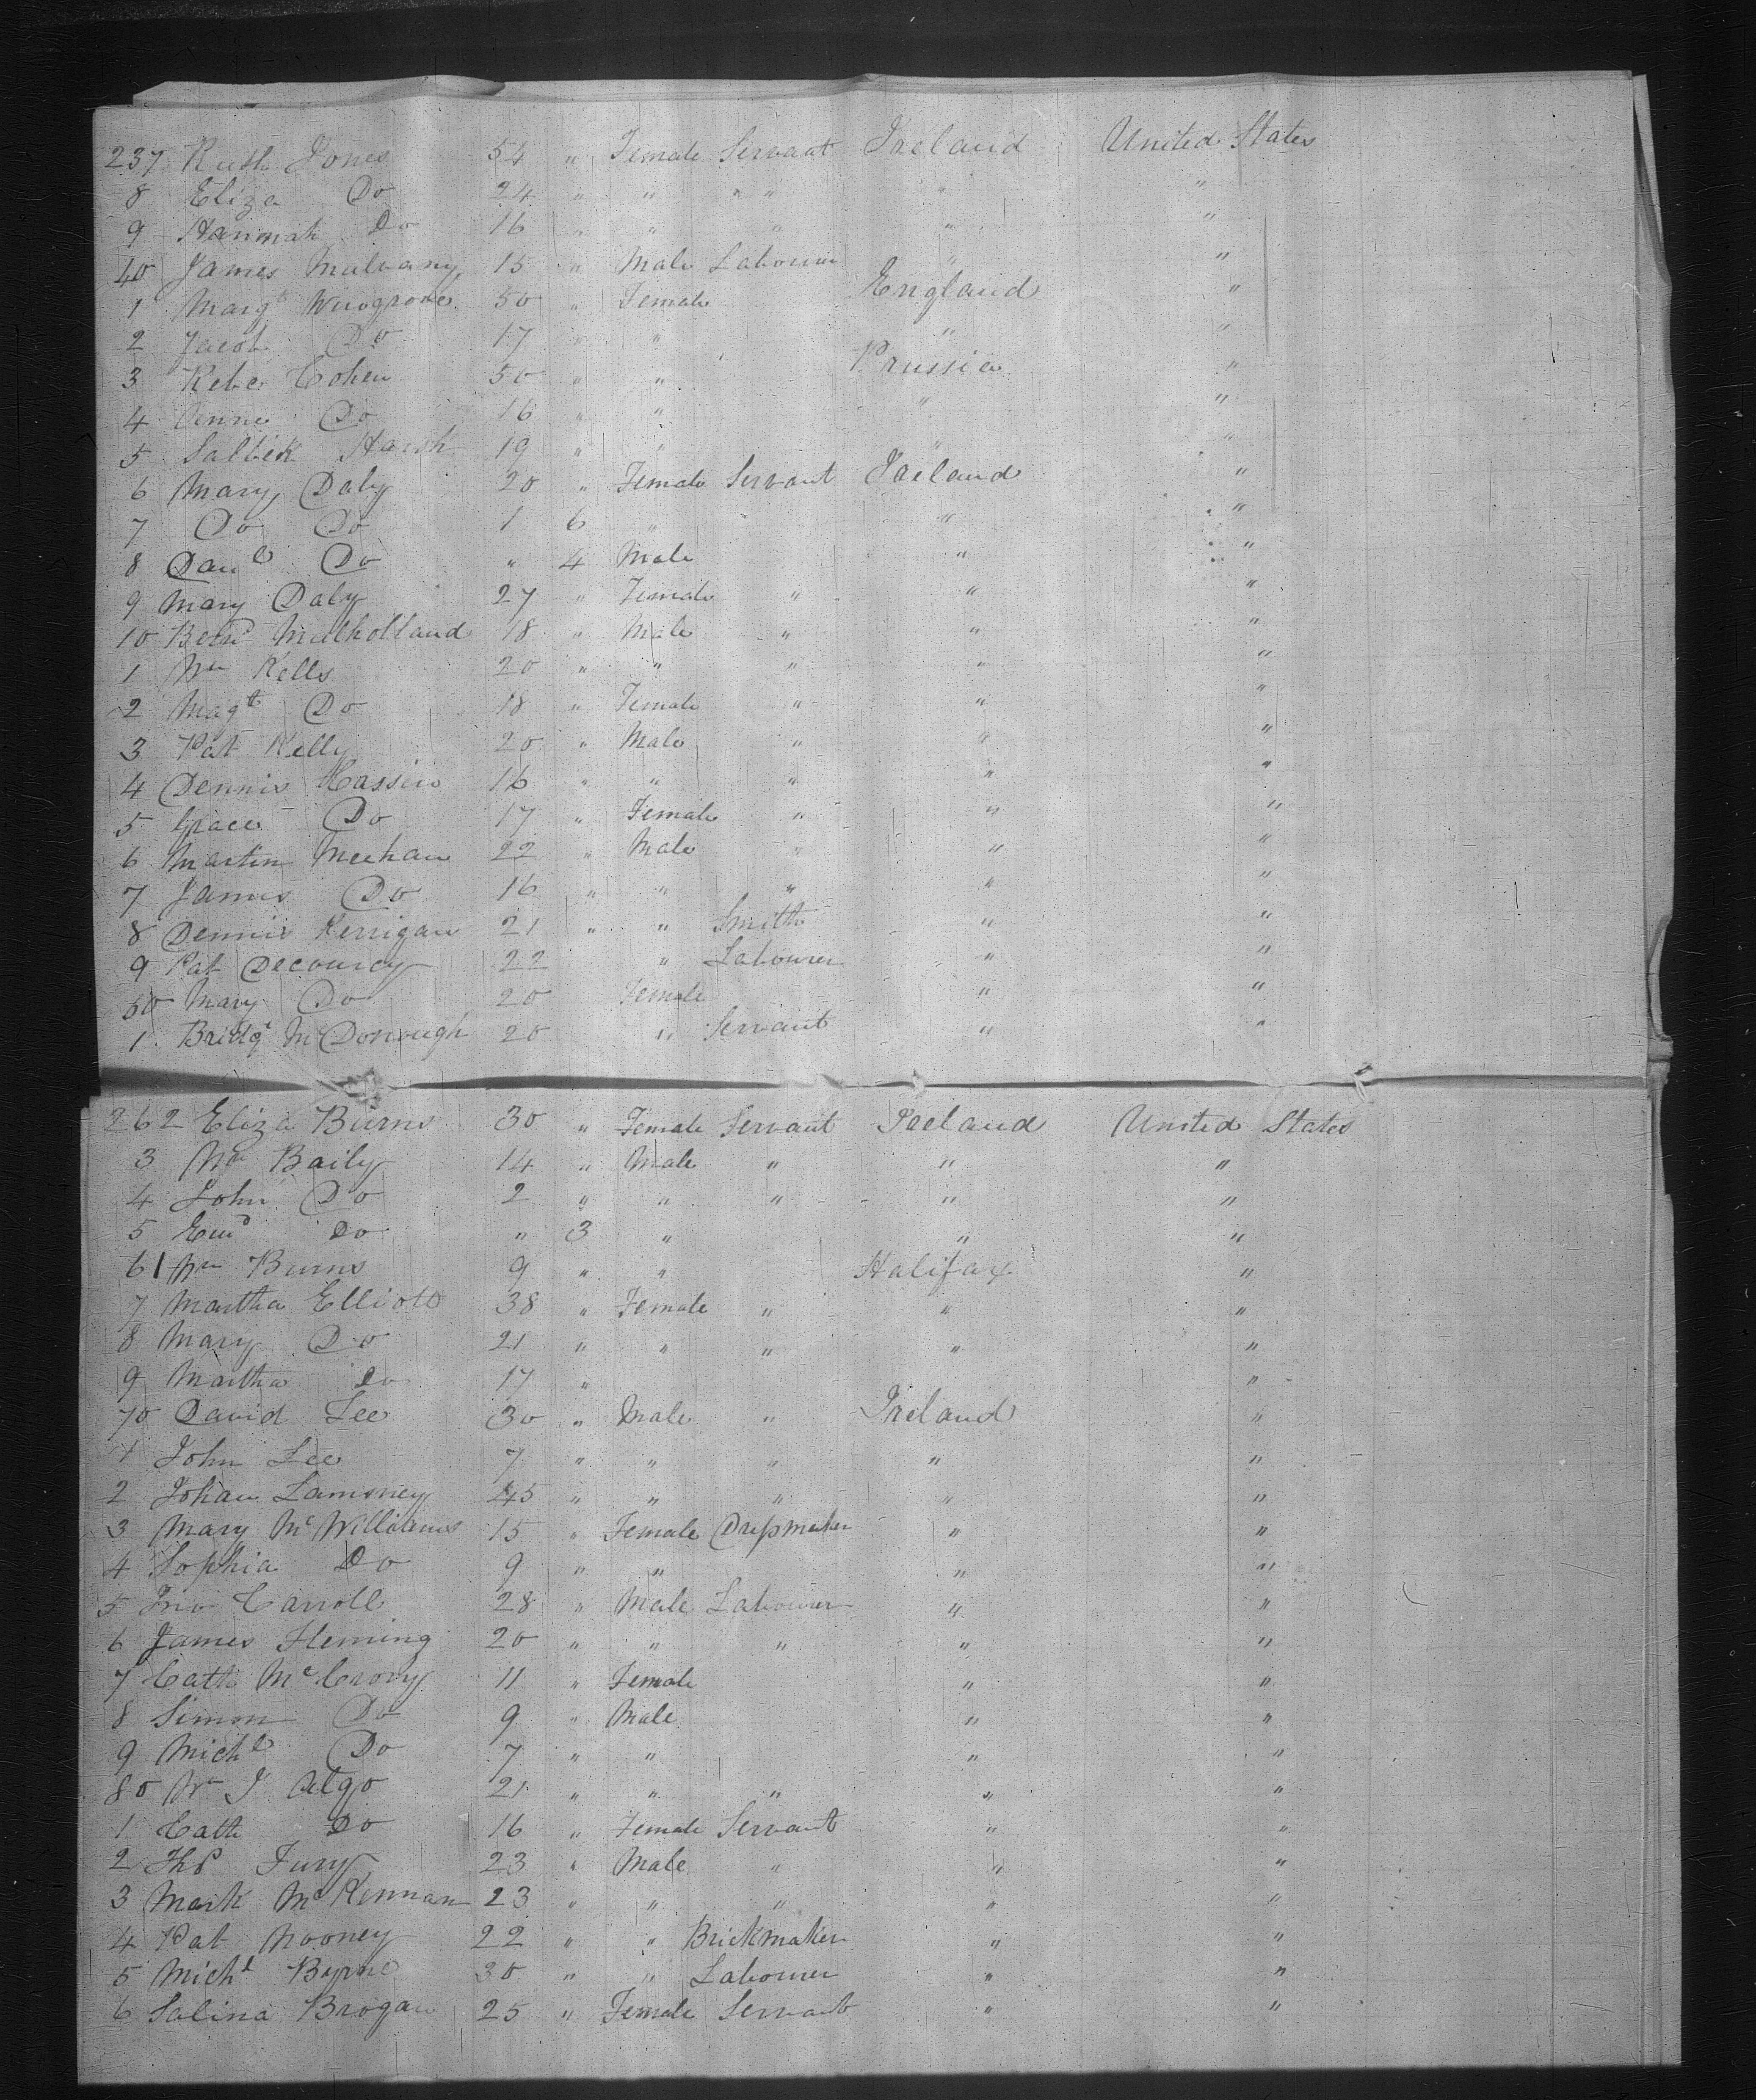 237 Ruth Jones 54 " Female Servant Ireland United States
8 Eliza Do 24 " " " " " "
9 Hannah Do 16 " " " " "
40 James Mulvany 15 " Male Labourer " "
1 Margt 50 " Female England "
2 Jacob Do 17 " " " "
3 Cohen 50 " " Prussia "
4 Anne Do 16 " " " "
5 19 " " " "
6 Mary Daly 20 " Female Servant Ireland "
7 Do Do 1 6 " " "
8 Danl Do " 4 Male " "
9 Mary Daly 27 " Female " " "
10 Bernd Mulholland 18 " Male " " "
1 Wm Kells 20 " " " " "
2 Magt Do 18 " Female " " "
3 Pat Kelly 20 " Male " " "
4 Dennis Hassin 16 " " " " "
5 Grace Do 17 " Female " " "
6 Martin Meehan 22 " Male " " "
7 James Do 16 " " " " "
8 Dennis Kerrigan 21 " " Smith " "
9 Pat Decourcy 22 " Labourer " "
50 Mary Do 20 Female " "
1 Bridgt McDonough 20 " Servant " "
262 Eliza Burns 30 " Female Servant Ireland United States
3 Wm Baily 14 " Male " " "
4 John Do 2 " " " " "
5 Edwd Do " 3 " " "
6 Wm Burns 9 " " Halifax "
7 Martha Elliott 38 " Female " " "
8 Mary Do 21 " " " " "
9 Martha Do 17 " "
70 David Lee 30 " Male " Ireland "
1 John Lee 7 " " " " "
2 Johan Lamoney 45 " " " " "
3 Mary McWilliams 15 " Female Dressmaker " "
4 Sophia Do 9 " " " "
5 Jno Carroll 28 " Male Labourer " "
6 James Fleming 20 " " " " "
7 Cath McCrory 11 " Female " "
8 Simon Do 9 " Male " "
9 Michl Do 7 " " " "
80 Wm J Algo 21 " " " " "
1 Cath Do 16 " Female Servant " "
2 Thos Fury 23 " Male " " "
3 Mark McKennan 23 " " " " "
4 Pat Mooney 22 " " Brickmaker " "
5 Michl Byrne 30 " " Labourer " "
6 Salina Brogan 25 " Female Servant " "